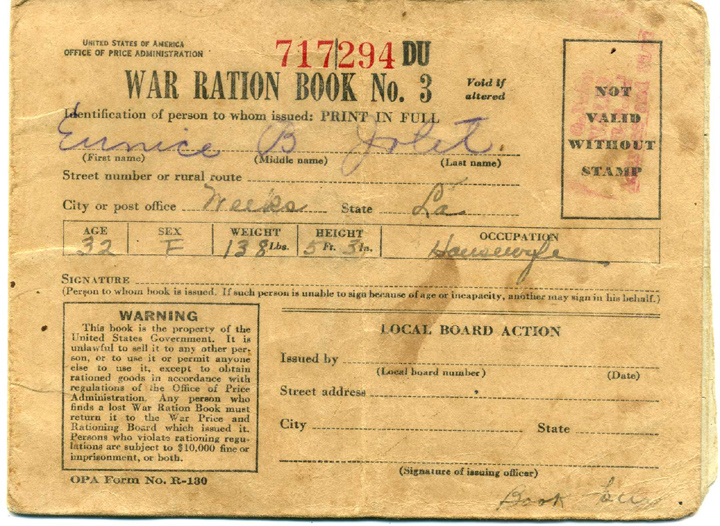 UNITED STATES OF AMERICA
OFFICE OF PRICE ADMINISTRATION
717294 DU
WAR RATION BOOK No. 3
Void if
altered
Identification of person to whom issued: PRINT IN FULL
Eunice B
(First name) (Middle name) (Last name)
Street number or rural route
City or post office Weeks State La.
NOT
VALID
WITHOUT
STAMP
AGE SEX WEIGHT HEIGHT OCCUPATION
32 F 138 Lbs. 5 Ft. 3 In. Housewife
SIGNATURE
(Person to whom book is issued. If such person is unable to sign because of age or incapacity, another may sign in his behalf.)
WARNING
This book is the property of the
United States Government. It is
unlawful to sell it to any other per-
son, or to use it or permit anyone
else to use it, except to obtain
rationed goods in accordance with
regulations of the Office of Price
Administration. Any person who
finds a lost War Ration Book must
return it to the War Price and
Rationing Board which issued it.
Persons who violate rationing regu-
lations are subject to $10,000 fine or
imprisonment, or both.
OPA Form No. R-130
LOCAL BOARD ACTION
Issued by
(Local board number) (Date)
Street address
City State
(Signature of issuing officer)
Book